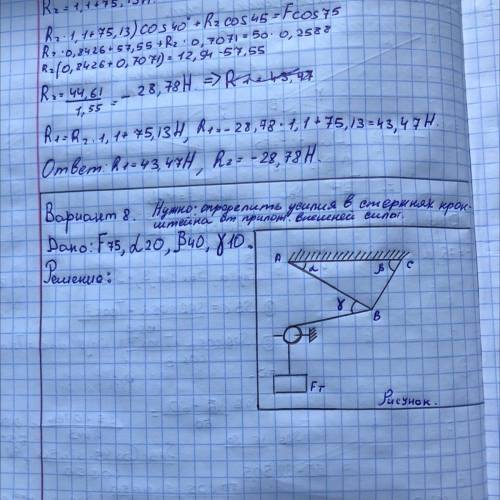 R₂ = 1,1+75,13Н.
R₂ · 1,1+75,13) cos 40° + R₂ cos 45 = F cos 75
R₂ · 0,8426 + 57,55 + R₂ · 0,7071 = 50 · 0,2588
R₂ (0,8426 + 0,7071) = 12,94 - 57,55
R₂ = 44,61/1,55 = - 28,78 Н => R1 = 43,47
R1 = R₂ · 1,1 + 75,13 Н, R1 = - 28,78 · 1,1 + 75,13 = 43,47 Н.
Ответ: R1 = 43,47 Н, R₂ = - 28,78 Н.
Вариант 8. Нужно: определить усилия в стержнях крон-
штейна от прилож. внешней силы.
Дано: F75, α20, β40, γ10.
Решение:
A α β C
γ B
Fт
Рисунок.